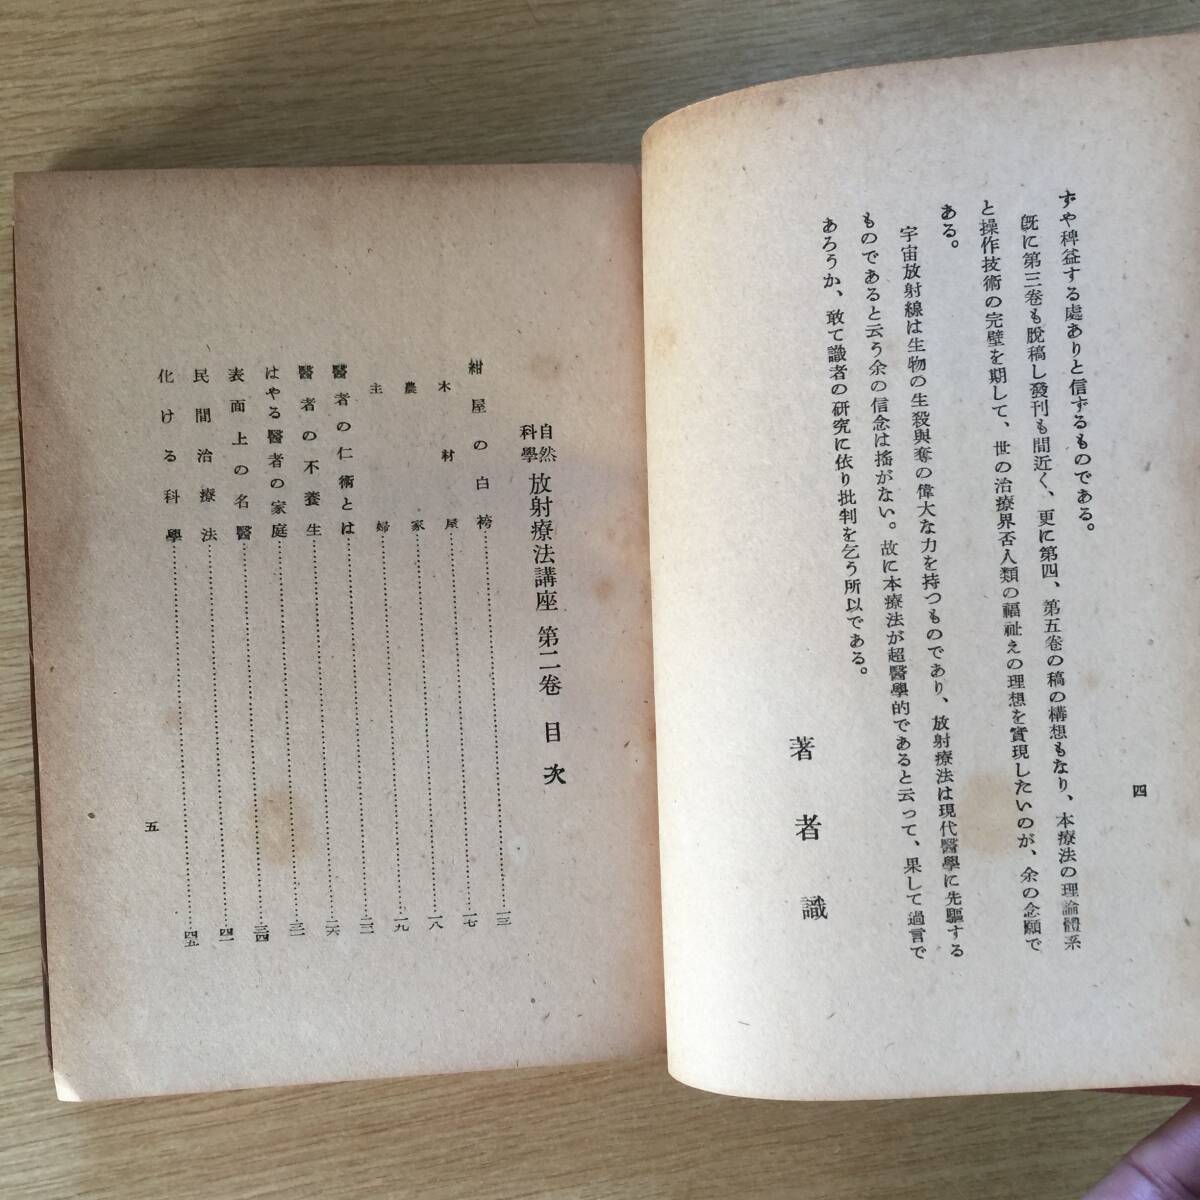 四
ずや稗益する處ありと信ずるものである。
既に第三卷も脫稿し發刊も間近く、更に第四、第五卷の稿の構想もなり、本療法の理論體系
と操作技術の完璧を期して、世の治療界否人類の福祉えの理想を實現したいのが、余の念願で
ある。
宇宙放射線は生物の生殺與奪の偉大な力を持つものであり、放射療法は現代醫學に先驅する
ものであると云う余の信念は搖がない。故に本療法が超醫學的であると云って、果して過言で
あろうか、敢て識者の研究に依り批判を乞う所以である。
著者識
自然科學 放射療法講座 第二卷 目次
紺屋の白袴 一三
木材屋 一七
農家 一八
主婦 一九
醫者の仁術とは 二三
醫者の不養生 二六
はやる醫者の家庭 三一
表面上の名醫 三四
民間治療法 四一
化ける科學 四五
五